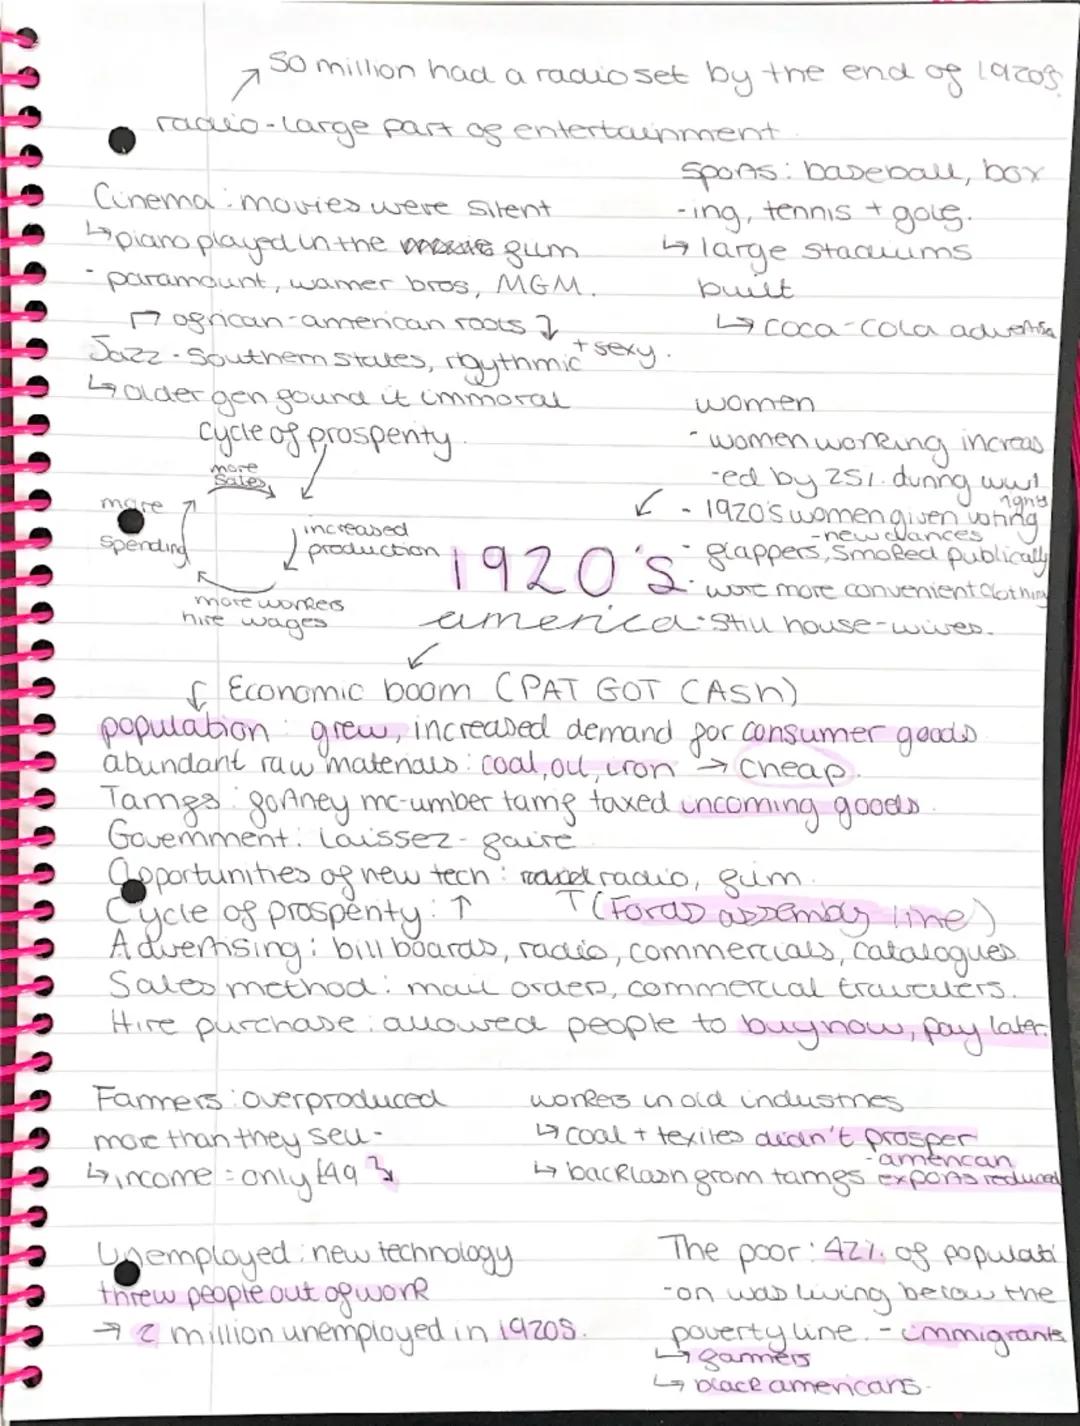 50 million had a radio set by the end of 1920s.
radio - large part of entertainment.
Cinema: movies were silent
↳ piano played in the film
- paramount, warner bros, MGM.
african-american roots
Jazz - Southern states, rhythmic + sexy.
↳ older gen found it immoral
sports: baseball, box
-ing, tennis + golf.
↳ large stadiums
built
↳ coca-cola advertise
cycle of prosperity.
more
sales
increased
production
more workers
hire wages
more
spending
women
- women working increas
-ed by 25% during ww1
- 1920's women given voting rights
- new chances
- flappers, smoked publically
- wore more convenient clothing
- still house-wives.
1920's
america
Economic boom (PAT GOT CASH)
population: grew, increased demand for consumer goods
abundant raw materials: coal, oil, iron → cheap.
Tariffs: fortney mc-umber tariff taxed incoming goods.
Government: laissez-faire
Opportunities of new tech: radio, film.
Cycle of prosperity: ↑ T (Fords assembly line)
Advertising: billboards, radio, commercials, catalogues
Sales method: mail orders, commercial travellers.
Hire purchase: allowed people to buy now, pay later.
Farmers: overproduced
more than they sell-
↳ income = only £49
workers in old industries
↳ coal + texiles didn't prosper
↳ backlash from tariffs - american
exports reduced
Unemployed: new technology
threw people out of work
→ 2 million unemployed in 1920s.
The poor: 42% of populati
-on was living below the
poverty line. - immigrants
↳ farmers
↳ black americans.